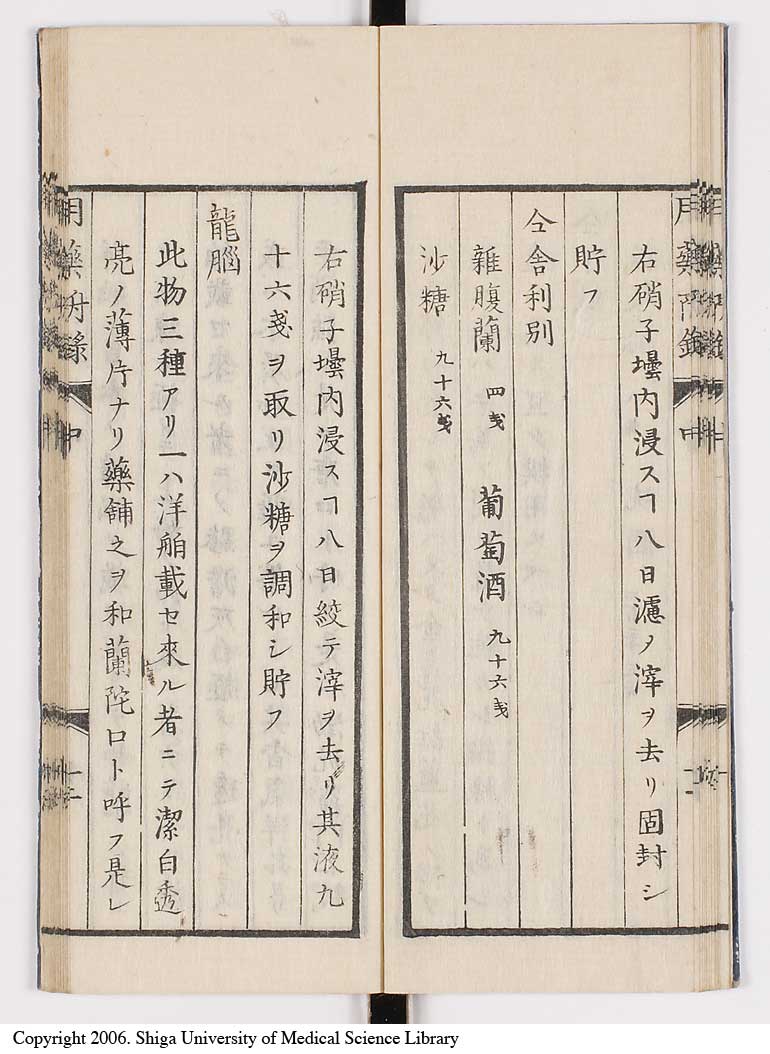 右硝子壜内浸スヿ八日濾ノ滓ヲ去リ固封シ
貯フ
仝舎利別
雜腹蘭 四戔 葡萄酒 九十六戔
沙糖 九十六戔
右硝子壜内浸スヿ八日絞テ滓ヲ去リ其液九
十六戔ヲ取リ沙糖ヲ調和シ貯フ
龍腦
此物三種アリ一ハ洋舶載セ來ル者ニテ潔白透
亮ノ薄片ナリ藥舖之ヲ和蘭陀口ト呼フ是レ
用藥 中
Copyright 2006. Shiga University of Medical Science Library